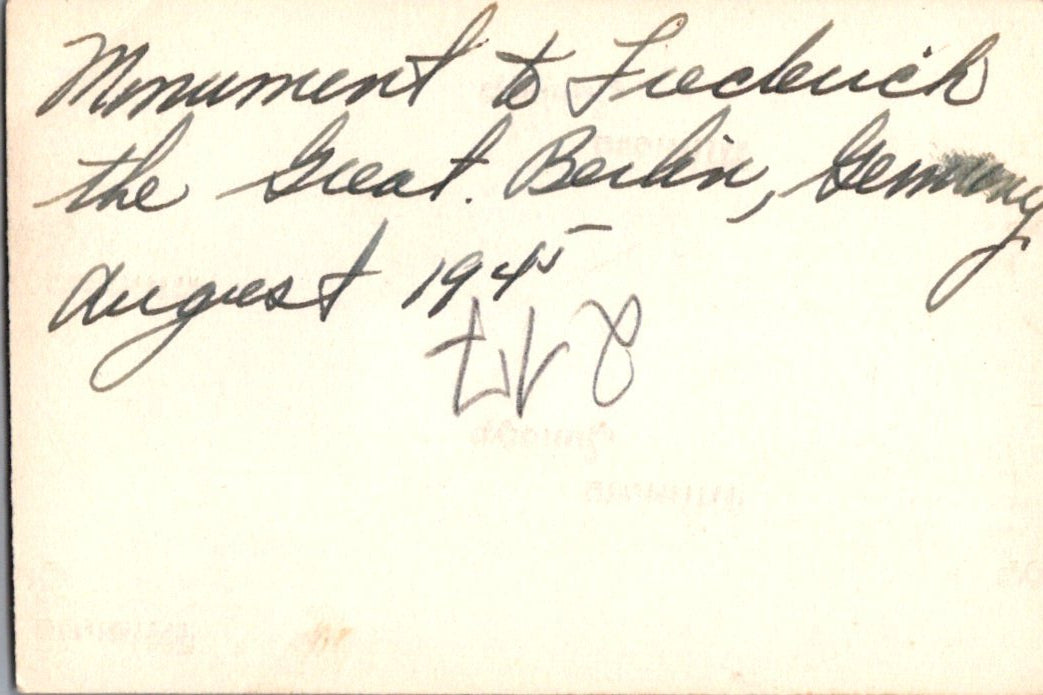 Monument to Frederick
the Great. Berlin, Germany
August 1945